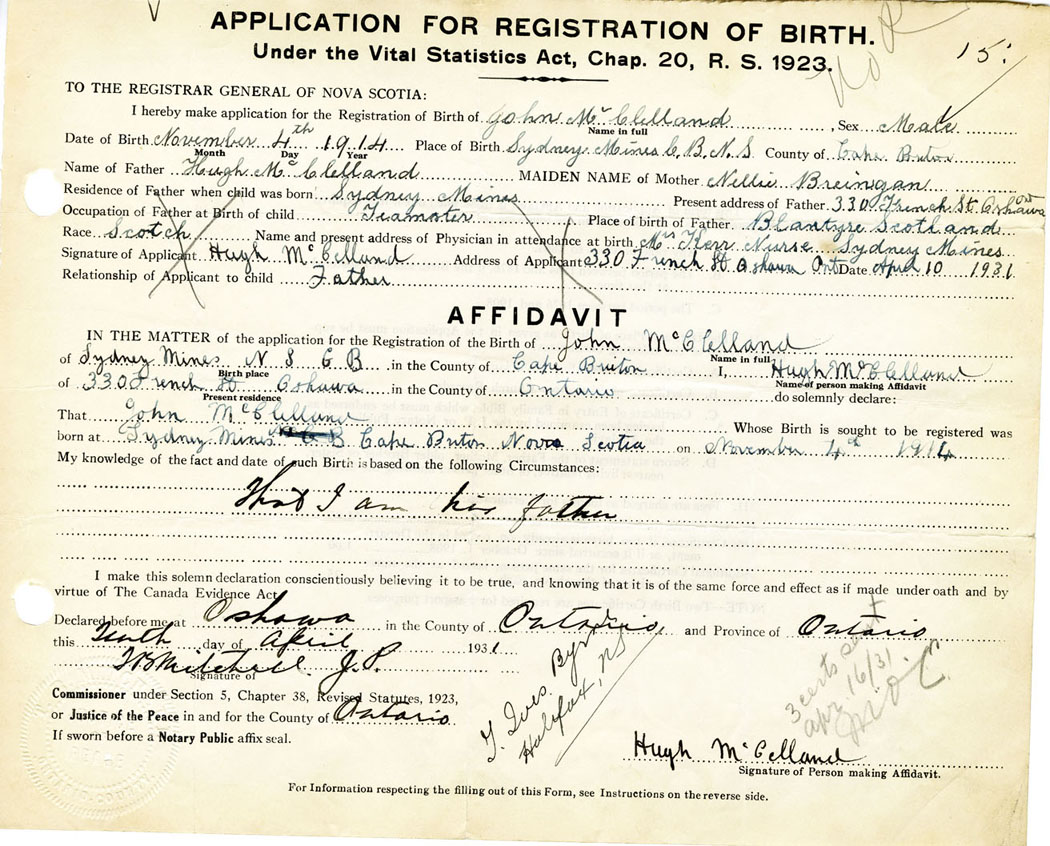 APPLICATION FOR REGISTRATION OF BIRTH.
Under the Vital Statistics Act, Chap. 20, R. S. 1923.
15.
TO THE REGISTRAR GENERAL OF NOVA SCOTIA:
I hereby make application for the Registration of Birth of John McClelland, Sex Male
Name in full
Date of Birth November 4th 1914 Place of Birth Sydney Mines C.B. N.S County of Cape Briton
Month Day Year
Name of Father Hugh McClelland MAIDEN NAME of Mother Nellie Breingan
Residence of Father when child was born Sydney Mines Present address of Father 330 French St. Oshawa Ont
Occupation of Father at Birth of child Teamster Place of birth of Father Blantyre Scotland
Race Scotch Name and present address of Physician in attendance at birth Mrs Kerr Nurse Sydney Mines
Signature of Applicant Hugh McClelland Address of Applicant 330 French St Oshawa Ont Date April 10 1931
Relationship of Applicant to child Father
AFFIDAVIT
IN THE MATTER of the application for the Registration of the Birth of John McClelland
Name in full
of Sydney Mines N S C B in the County of Cape Briton I, Hugh McClelland
Birth place Name of person making Affidavit
of 330 French St Oshawa in the County of Ontario do solemnly declare:
Present residence
That John McClelland Whose Birth is sought to be registered was
born at Sydney Mines Cape Briton Nova Scotia on November 4th 1914
My knowledge of the fact and date of such Birth is based on the following Circumstances:
That I am his father
I make this solemn declaration conscientiously believing it to be true, and knowing that it is of the same force and effect as if made under oath and by
virtue of The Canada Evidence Act
Declared before me at Oshawa in the County of Ontario and Province of Ontario
this Tenth day of April 1931
Mitchell J.P.
Signature of
Commissioner under Section 5, Chapter 38, Revised Statutes, 1923,
or Justice of the Peace in and for the County of Ontario
If sworn before a Notary Public affix seal.
Halifax, NS
3 certs sent
apr 16/31
Hugh McClelland
Signature of Person making Affidavit.
For Information respecting the filling out of this Form, see Instructions on the reverse side.